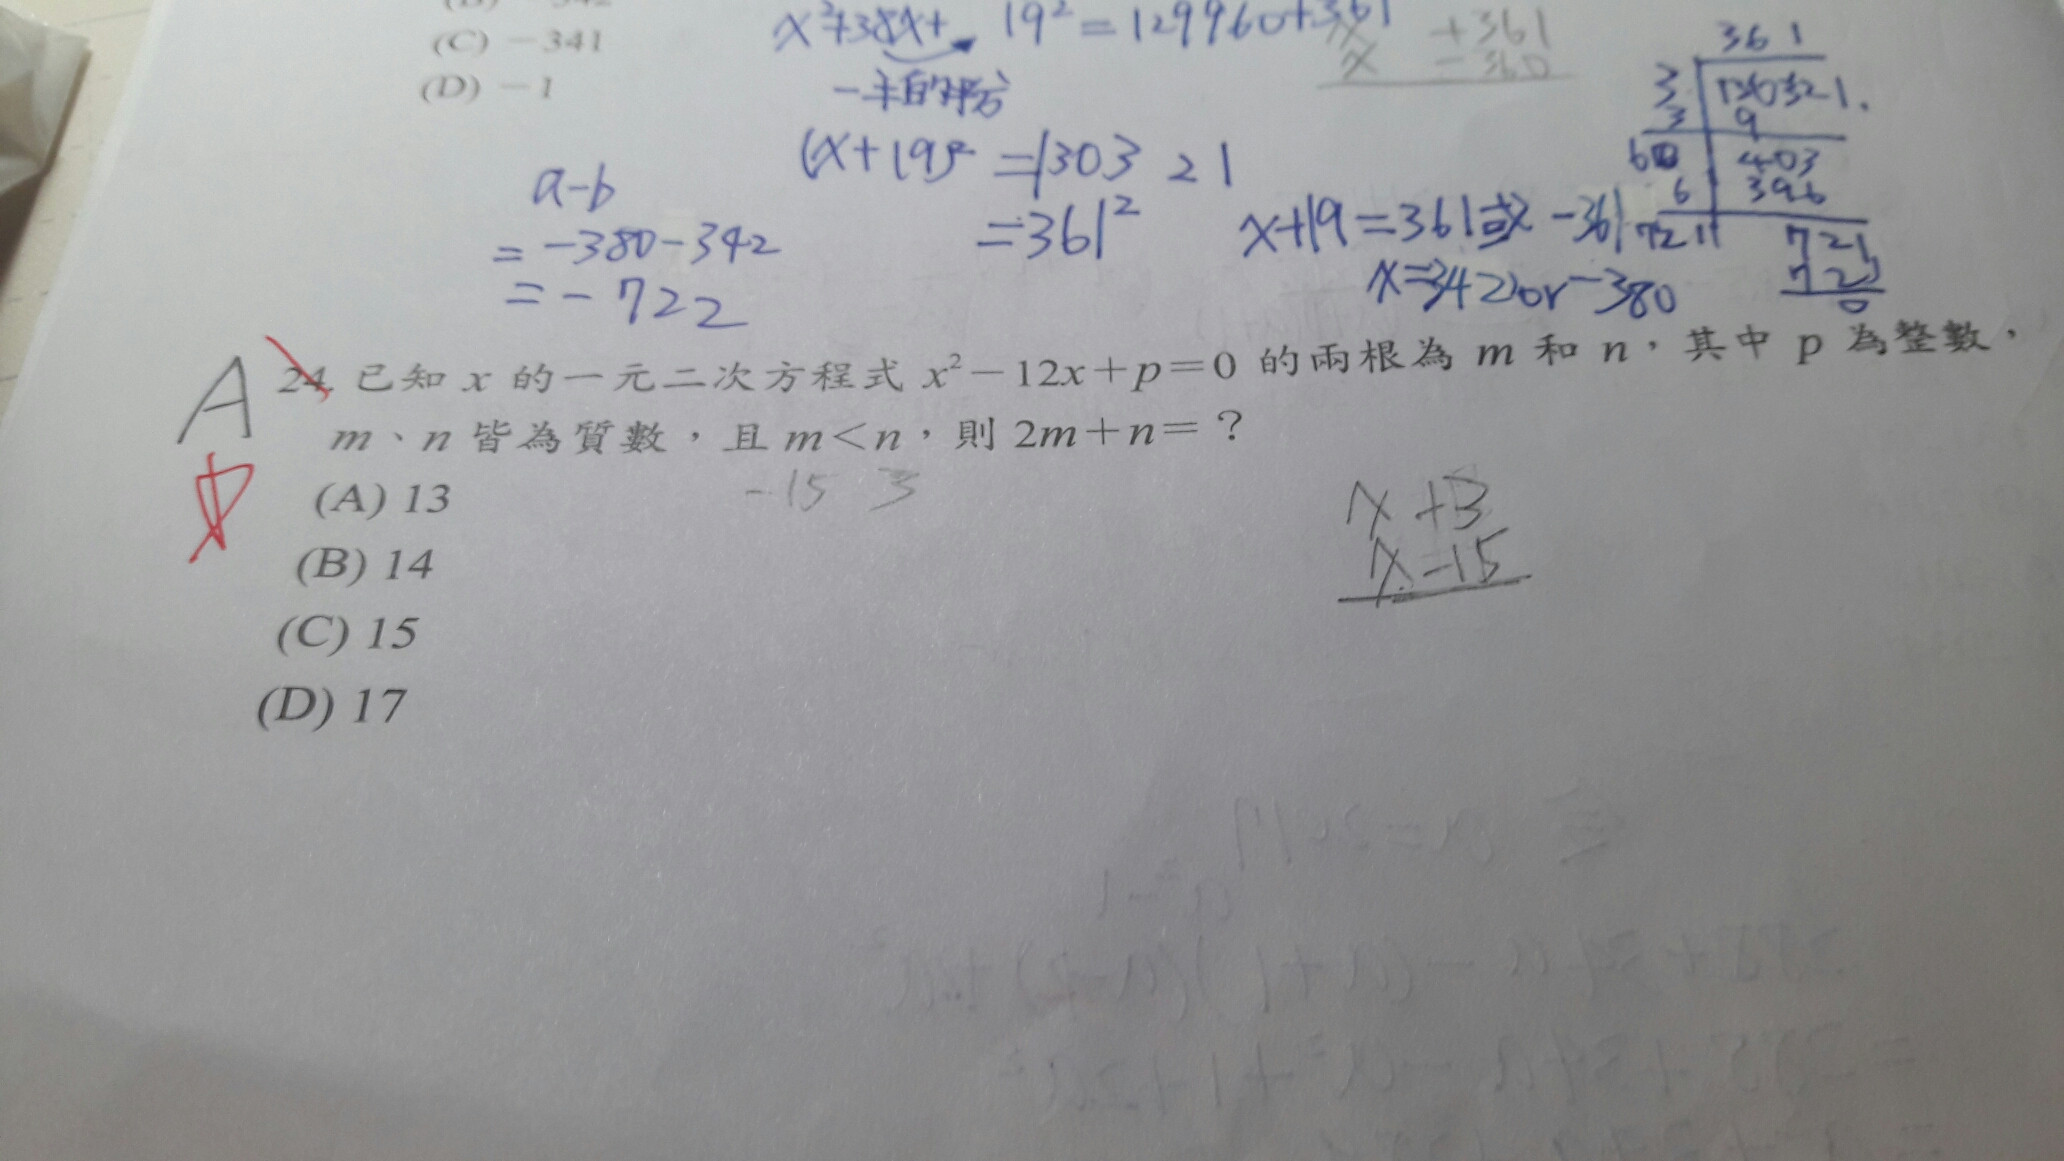 (C) －341
(D) －1
x²+38x+ 19²=129960+361
+361
x －360
一半的平方
(x+19)²=130321
=361²
x+19=361或－361
x=342or－380
a-b
=－380－342
=－722
361
3 130321
3 9
403
6 396
721 721
721
0
A
24. 已知 x 的一元二次方程式 x²－12x＋p＝0 的兩根為 m 和 n，其中 p 為整數，
m、n 皆為質數，且 m＜n，則 2m＋n＝？
－15 3
(A) 13
(B) 14
(C) 15
(D) 17
x +3
x －15